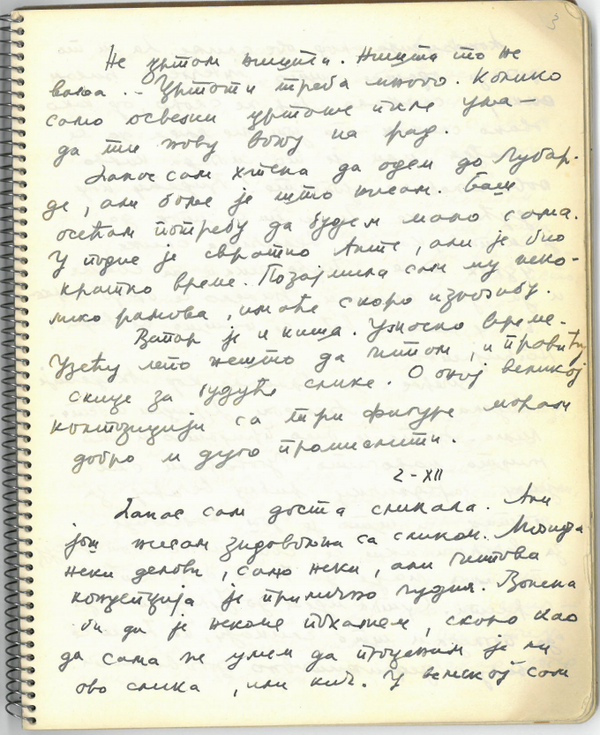 3
Не цртам ништа. Ништа то не
ваља. - Цртати треба много. Колико
само освежи цртање и
да ти нову вољу на рад.
Данас сам хтела да одем до Лубар-
де, али боље је што нисам. Баш
осећам потребу да будем мало сама.
У подне је свратио Анте, али је био
кратко време. Позајмила сам му неко-
лико рамова, имаће скоро изложбу.
Ветар је и киша. Ужасно време.
Узећу лепо нешто да читам, и правићу
скице за будуће слике. О оној великој
композицији са три фигуре морам
добро и дуго промислити.
2-XII
Данас сам доста сликала. Али
још нисам задовољна са сликом. Можда
неки делови, само неки, али читава
концепција је прилично чудна. Волела
би да је некоме покажем, скоро као
да сама не умем да проценим је ли
ово слика, или кич. У великој сам